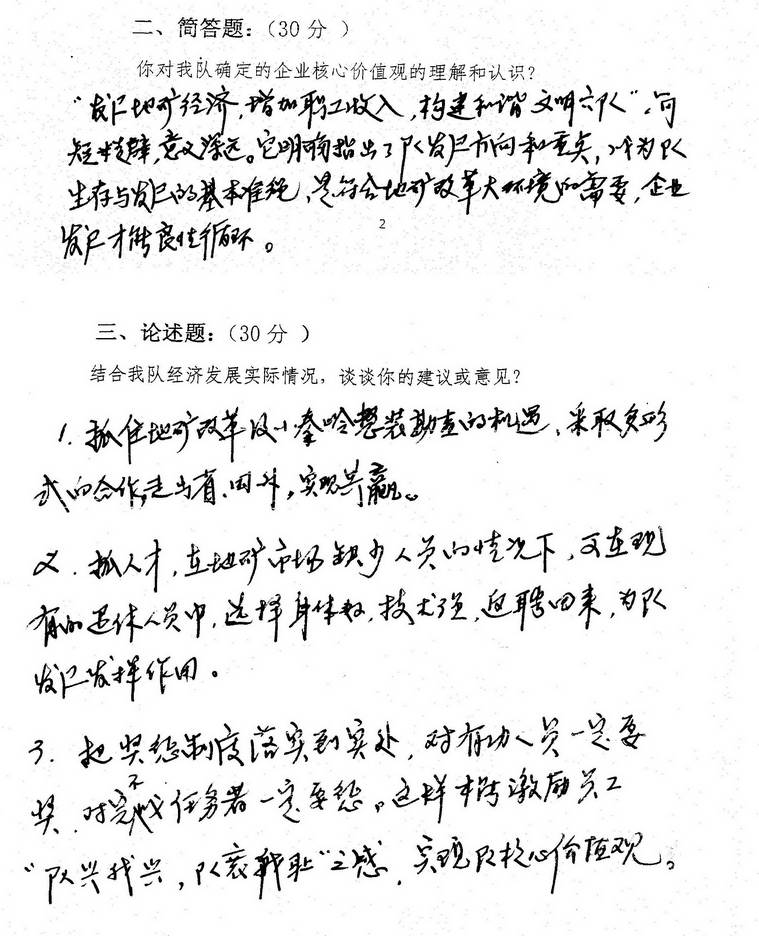 二、简答题：（30分 ）
你对我队确定的企业核心价值观的理解和认识？
“发展地矿经济，增加职工收入，构建和谐文明六队”，句
短精辟，意义深远。它明确指出了队发展方向和重点，作为队
生存与发展的基本准绳，是符合地矿改革大环境的需要，企业
2
发展才能良性循环。
三、论述题：（30分 ）
结合我队经济发展实际情况，谈谈你的建议或意见？
1. 抓住地矿改革及小秦岭整装勘查的机遇，采取多形
式的合作，走出省、国外，实现共赢。
2. 抓人才，在地矿市场缺少人员的情况下，可在现
有的退休人员中，选择身体好，技术强，返聘回来，为队
发展发挥作用。
3. 把奖惩制度落实到实处，对有功人员一定要
奖，对完不成任务者一定要惩。这样才能激励员工
“队兴我兴，队衰我耻”之感，实现队核心价值观。